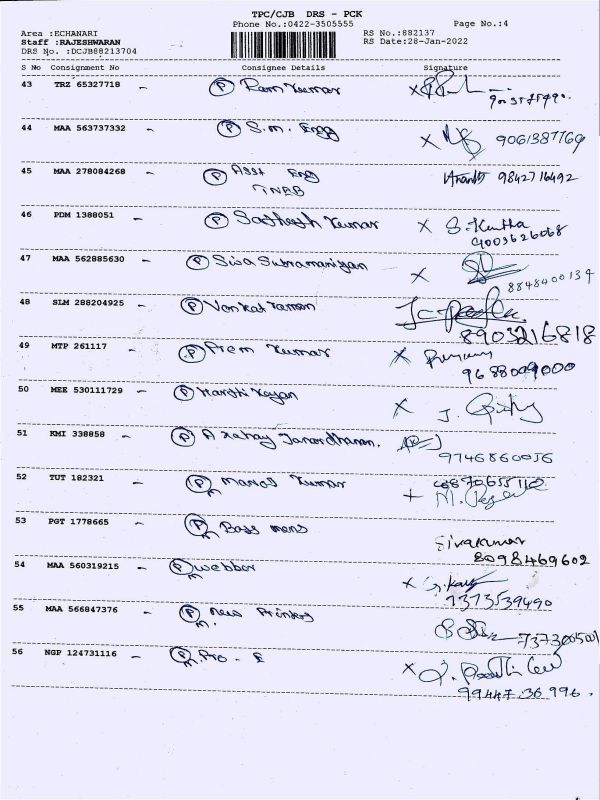 TPC/CJB DRS - PCK
Phone No.:0422-3505555 Page No.:4
Area :ECHANARI RS No.:882137
Staff :RAJESHWARAN RS Date:28-Jan-2022
DRS No. :DCJB88213704
S No Consignment No Consignee Details Signature
43 TRZ 65327718 - P Ram Kumar
44 MAA 563737332 - P S.M. Engg 9061387769
45 MAA 278084268 - P Asst Eng Ananth 9842716492
TNEB
46 PDM 1388051 - P Sathesh Kumar X
9003626068
47 MAA 562885630 - P Siva Subramaniyan X
8848400134
48 SLM 288204925 - P Venkat Raman
8903216818
49 MTP 261117 - P Prem Kumar X
9688009000
50 MEE 530111729 - P X J.
51 KMI 338858 - P Janardhanan.
9746860056
52 TUT 182321 - P Manoj Kumar
53 PGT 1778665 - P Bass mens
Sivakumar
8098469602
54 MAA 560319215 - P webbor X
7373539490
55 MAA 566847376 - P New Printers
56 NGP 124731116 - P Pro - E X
99447.36 996.